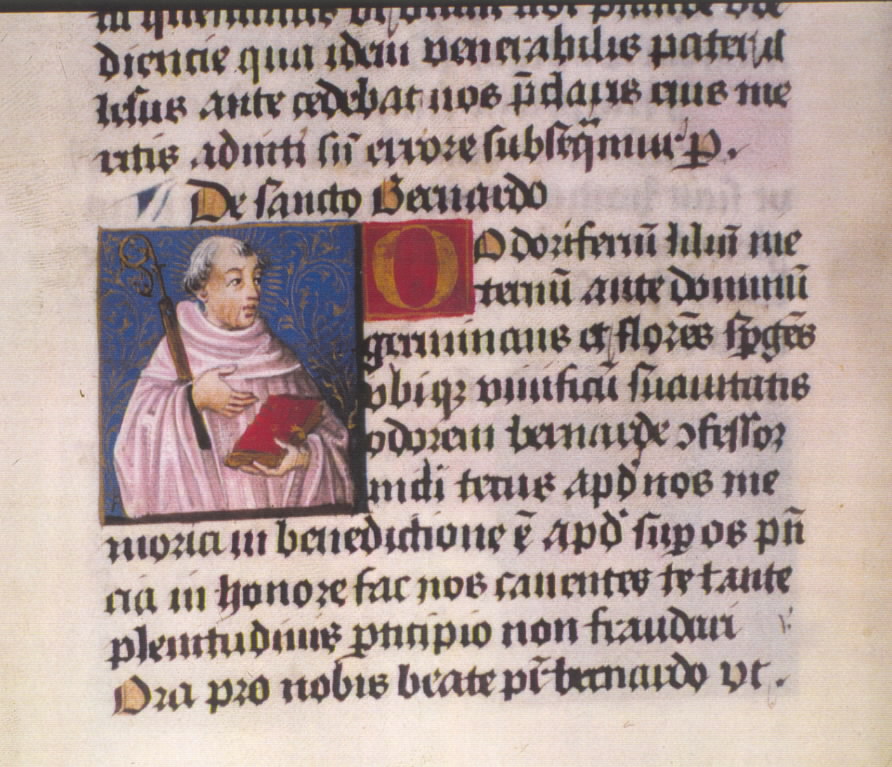 diencie qua idem venerabilis pater
Iesus ante cedebat nos p̄claris eius me
ritis adiuti sū errore subseq̄mur P.
De sancto Bernardo
O Odoriferū liliū me
ternū ante dominū
germinans et florēs sp̄gēs
vbiqꝫ viuificū suauitatis
odorem bernarde ꝯfessor
andi tetus apd̓ nos me
moria in benedictione ē apd̓ suꝑos pn̄
cia in honore fac nos canentes te tante
plenitudinis ꝑticipio non fraudari
Ora pro nobis beate pr̄ bernardo vt.